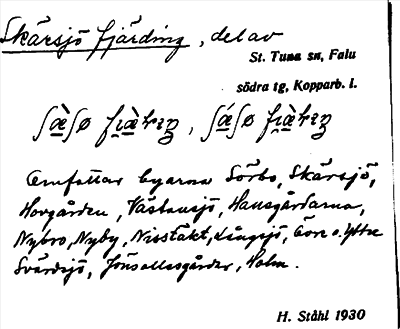 Skärsjö fjärding, del av
St. Tuna sn, Falu
södra tg, Kopparb. l.
Omfattar byarna Sörbo, Skärsjö,
Hovgården, Västansjö, Hansgårdarna,
Nybro, Nyby, Nisstäkt, Långsjö, Övre o. Yttre
Svärdsjö, Jönsollesgården, Holm.
H. Ståhl 1930